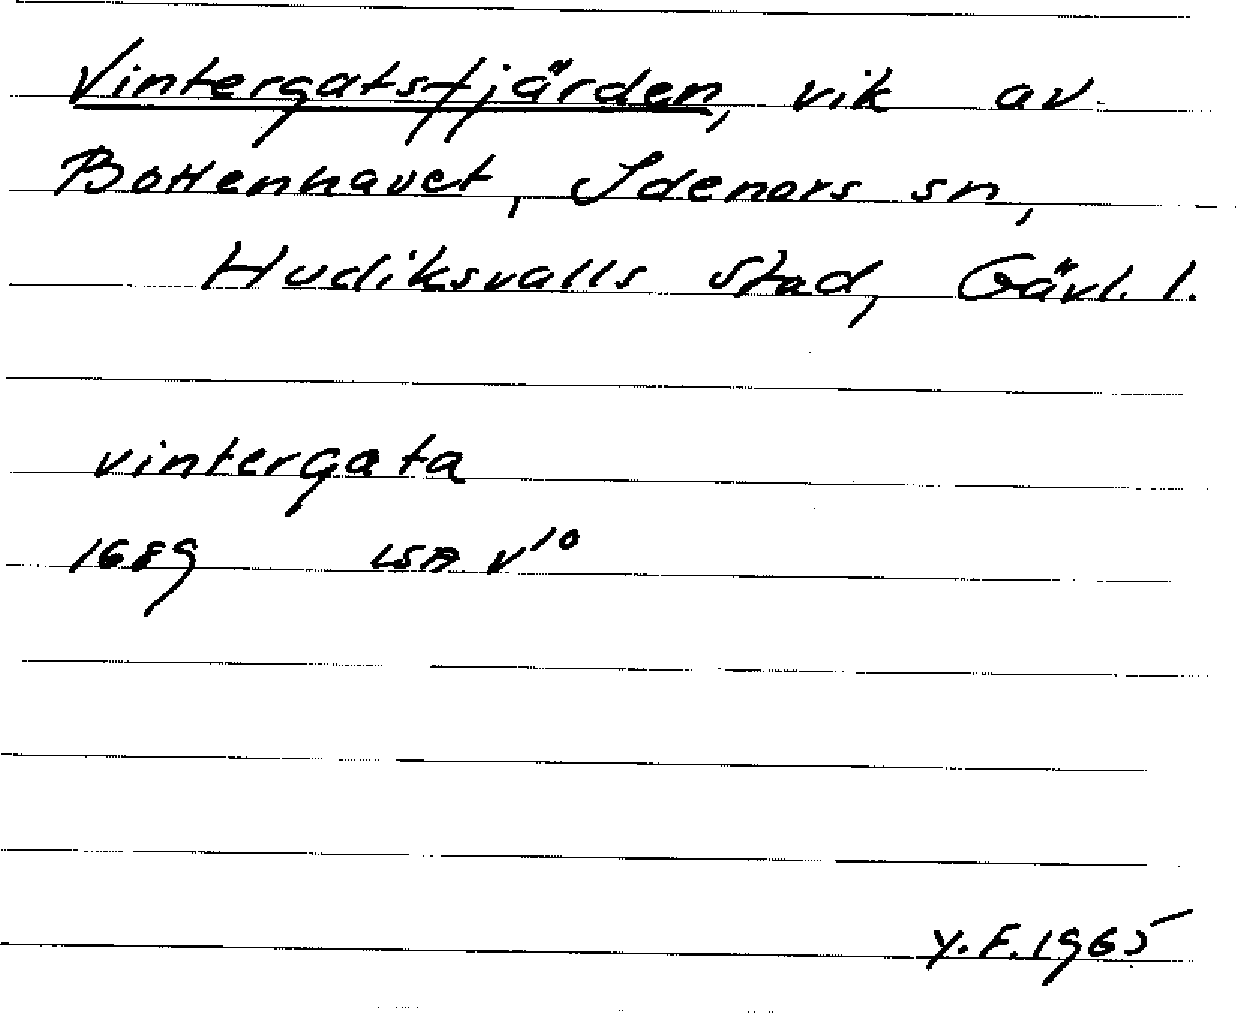 Vintergatsfjärden, vik av
Bottenhavet, Idenors sn,
Hudiksvalls stad, Gävl. l.
vintergata
1689 LSA V¹⁰
Y.F. 1965